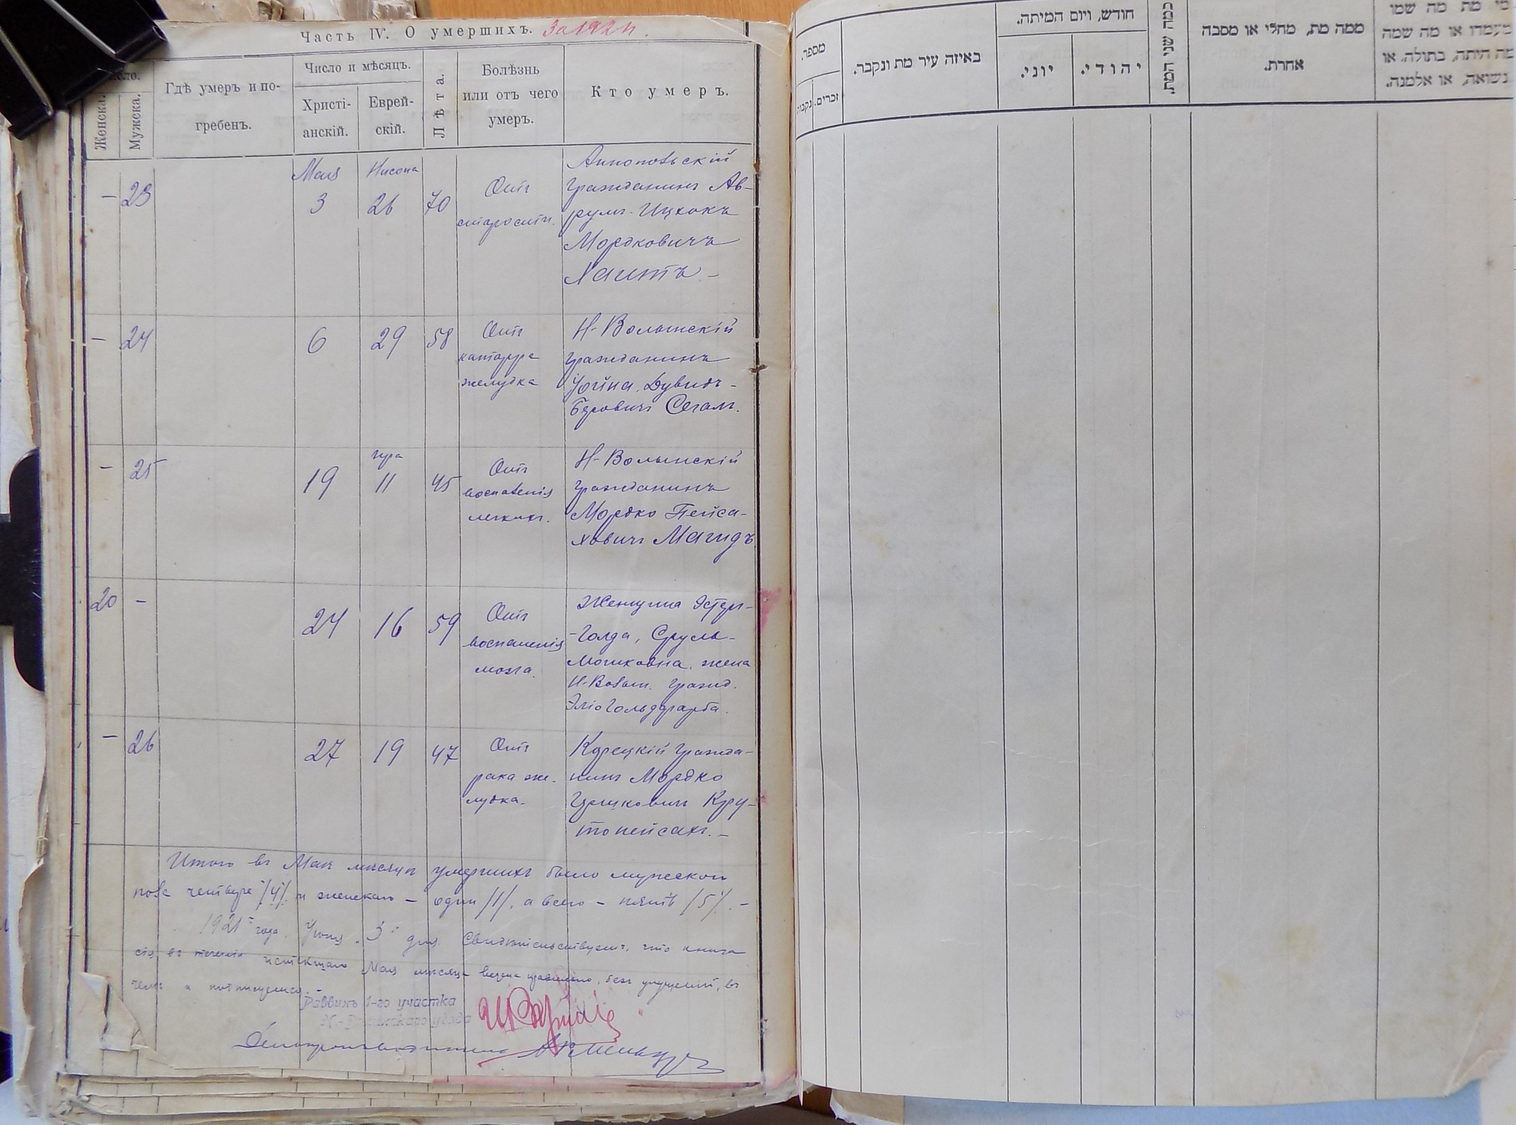 Часть IV. О умершихъ. За 1921 г.
Число и мѣсяцъ.
Женска.
Мужска.
Гдѣ умеръ и погребенъ.
Христіанскій.
Еврейскій.
Лѣта.
Болѣзнь или отъ чего умеръ.
Кто умеръ.
— 23
Мая
3
Нисона
26
70
Отъ
старости.
Аннопольскій
гражданинъ Ав-
румъ-Ицхокъ
Мордковичъ
— 24
6
29
58
Отъ
катарра
желудка
Н-Волынскій
гражданинъ
Дувидъ-
Беровичъ Сегалъ.
— 25
19
іера
11
45
Отъ
воспаленія
легкихъ.
Н-Волынскій
гражданинъ
Мордко Пейса-
ховичъ Магидъ
20 —
24
16
59
Отъ
воспаленія
мозга.
Женщина Эстеръ-
-Голда, Сруль-
Мошковна, жена
Н-Волын. гражд.
Эліо Гольдфарба.
— 26
27
19
47
Отъ
рака же-
лудка.
Корецкій гражда-
нинъ Мордко
Гершковичъ Кру-
топейсахъ. —
Итого въ Маѣ мѣсяцѣ умершихъ было мужеского
пола четыре /4/ и женскаго — одна /1/, а всего — пять /5/. —
1921 года Іюня "3" дня. Свидѣтельствуемъ, что книга
сія въ теченіи истекшаго Мая мѣсяца ведена правильно, безъ упущеній, въ
чемъ и подписуемся.
Раввинъ 1-го участка
Н.-Волынскаго уѣзда
Дѣлопроизводитель
מספר.
זכרים.
נקבות
באיזה עיר מת ונקבר.
חודש, ויום המיתה.
יוני.
יהודי.
כמה שני המת.
ממה מת, מחלי או מסבה
אחרת.
מי מת מה שמו
מעמדו או מה שמה
מת היתה, בתולה, או
נשואה, או אלמנה.